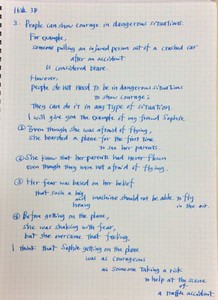 3. People can show courage in dangerous situations.
For example,
someone pulling an injured person out of a crashed car
after an accident
is considered brave.
However,
people do not need to be in dangerous situations
to show courage;
They can do it in any type of situation
I will give you the example of my friend Sophie.
① Even though she was afraid of flying,
she boarded a plane for the first time
to see her parents.
② She knew that her parents had never flown
even though they were not afraid of flying.
③ Her fear was based on her belief
that such a big and heavy machine should not be able to fly
in the air.
④ Before getting on the plane,
she was shaking with fear,
but she overcame that feeling.
I think that Sophie getting on the plane
was as courageous
as someone taking a risk
to help at the scene
of
a traffic accident